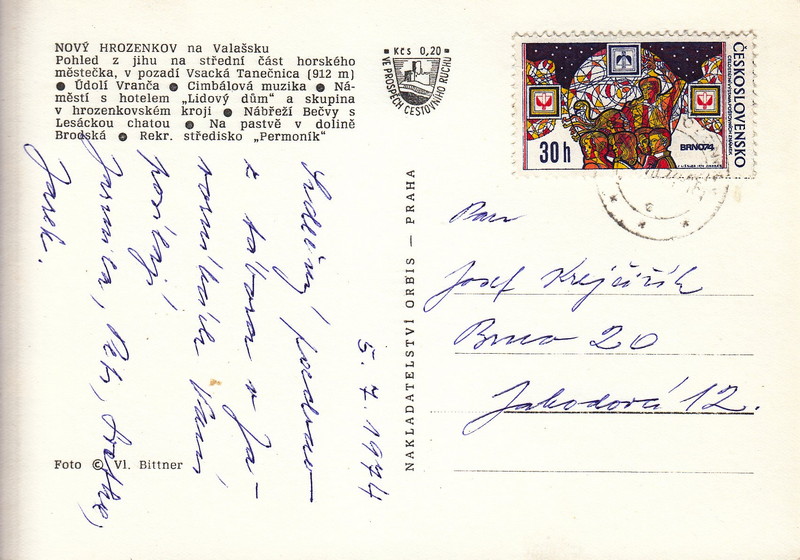 NOVÝ HROZENKOV na Valašsku
Pohled z jihu na střední část horského
městečka, v pozadí Vsacká Tanečnica (912 m)
● Údolí Vranča ● Cimbálová muzika ● Ná-
městí s hotelem „Lidový dům" a skupina
v hrozenkovském kroji ● Nábřeží Bečvy s
Lesáckou chatou ● Na pastvě v dolině
Brodská ● Rekr. středisko „Permoník"
Kčs 0,20
VE PROSPĚCH CESTOVNÍHO RUCHU
ČESKOSLOVENSKO
BRNO74
30 h
5. 7. 1974
Srdečný pozdrav
z tábora v Ja-
Vám
posílají
Jarmila, Petr,
Jarek.
NAKLADATELSTVÍ ORBIS — PRAHA
Pan
Josef Krejčiřík
Brno 20
Jahodová 12.
Foto © Vl. Bittner